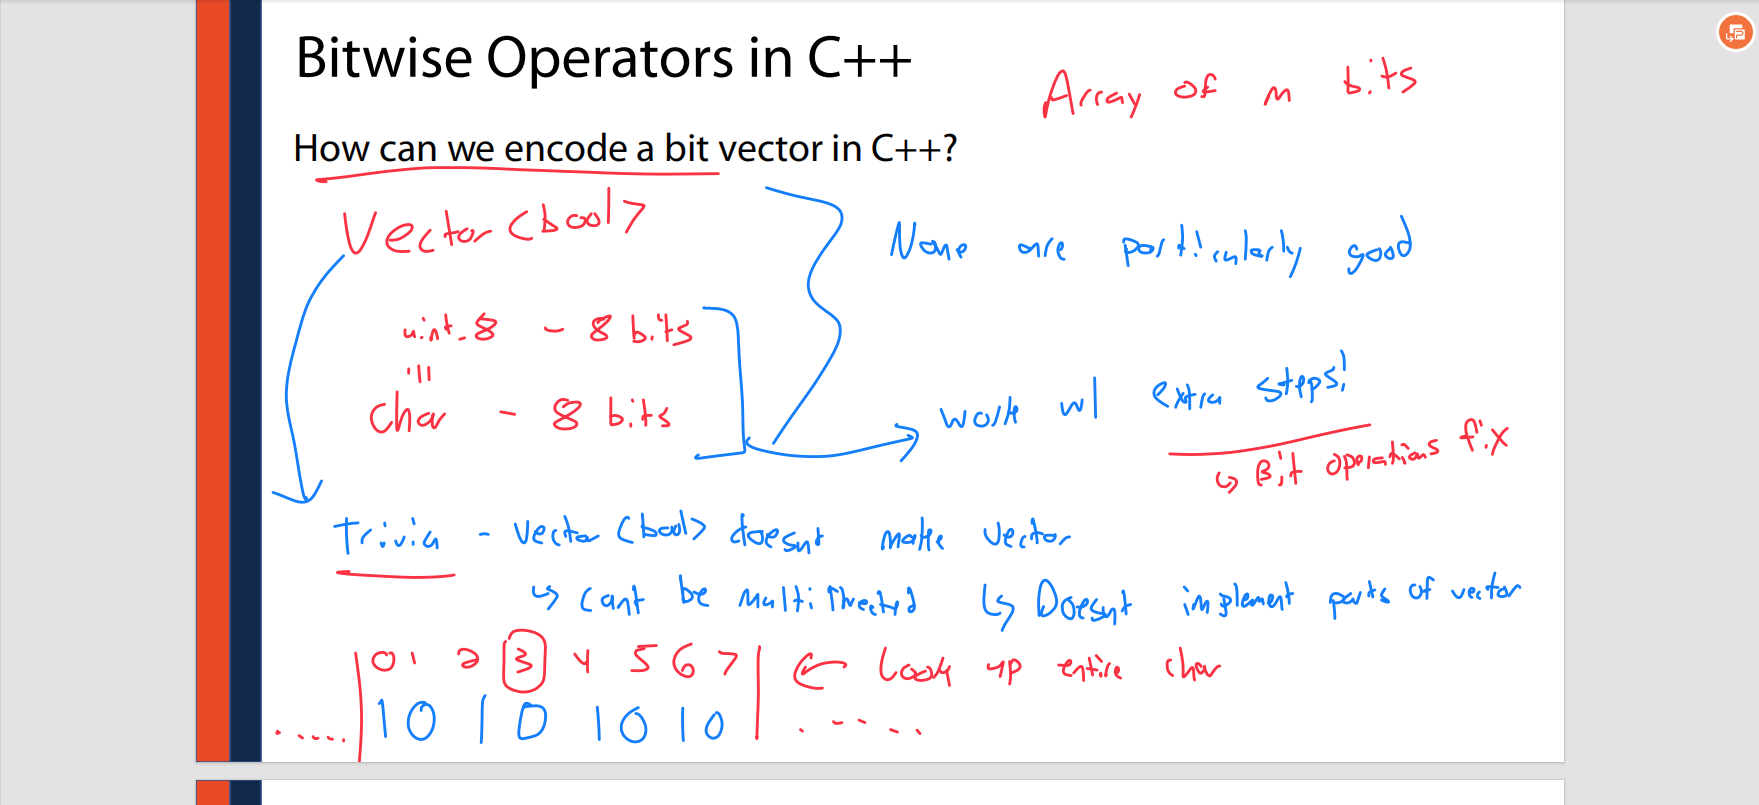 Bitwise Operators in C++
Array of m bits
How can we encode a bit vector in C++?
Vector <bool>
None are particularly good
uint_8 - 8 bits
char - 8 bits
work w/ extra steps!
↳ Bit operations fix
Trivia - vector <bool> doesnt make vector
↳ cant be multithreaded ↳ Doesnt implement parts of vector
0 1 2 3 4 5 6 7 ← Look up entire char
..... 1 0 1 0 1 0 1 0 .....